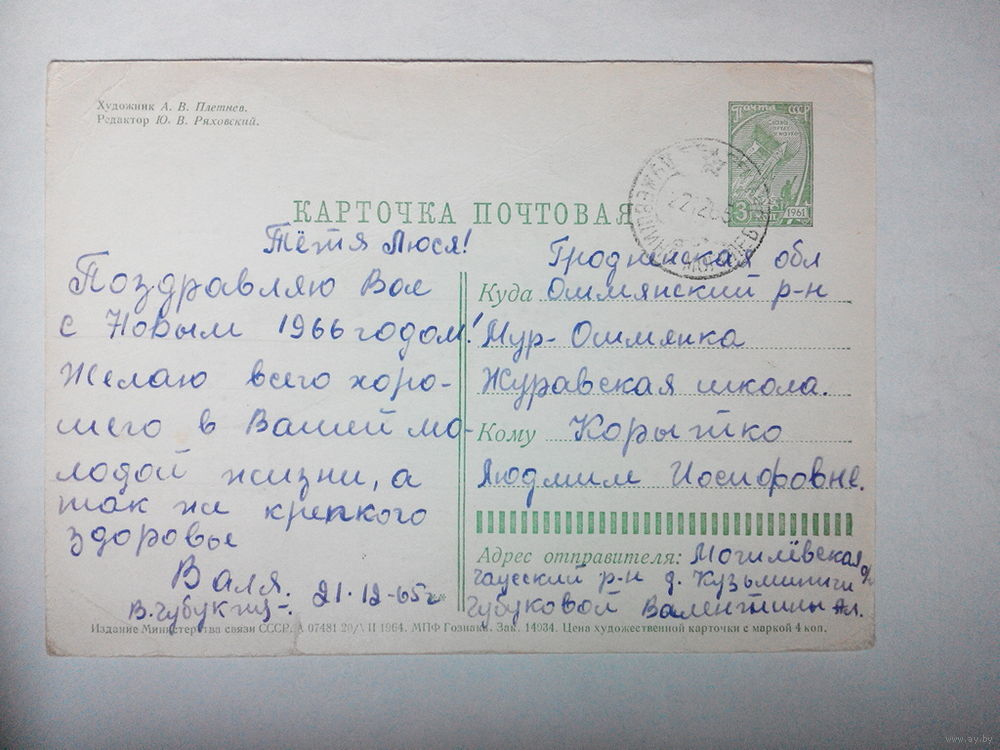 Художник А. В. Плетнев.
Редактор Ю. В. Ряховский.
Почта СССР
3 коп
1961
22 12 65
КАРТОЧКА ПОЧТОВАЯ
Тётя Люся!
Поздравляю Вас
с Новым 1966 годом!
Желаю всего хоро-
шего в Вашей мо-
лодой жизни, а
так же крепкого
здоровье
Валя.
21.12-65г
Гродненская обл
Куда Ошмянский р-н
Мур-Ошмянка
Журавская школа.
Кому Корытко
Людмиле Иосифовне.
Адрес отправителя: Могилёвская
р-н д. Кузьминичи
Чубуковой Валентины
Издание Министерства связи СССР. А 07481 20/VII 1964. МПФ Гознака. Зак. 14934. Цена художественной карточки с маркой 4 коп.
www.ay.by